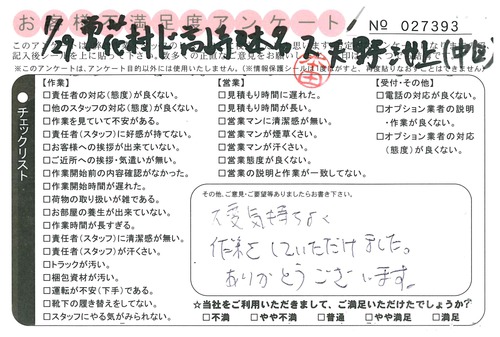 お客様満足度アンケート
No 027393
1/29
記入後シールを上に貼って下さい。
(※このアンケートは、アンケート目的以外には使用いたしません。
チェックリスト
【作業】
□責任者の対応(態度)が良くない。
□他のスタッフの対応(態度)が良くない。
□作業を見ていて不安がある。
□責任者(スタッフ)に好感が持てない。
□お客様への挨拶が出来ていない。
□ご近所への挨拶・気遣いが無い。
□作業開始前の内容確認がなかった。
□作業開始時間が遅れた。
□荷物の取り扱いが雑である。
□お部屋の養生が出来ていない。
□作業時間が長すぎる。
□責任者(スタッフ)に清潔感が無い。
□責任者(スタッフ)が汗くさい。
□トラックが汚い。
□梱包資材が汚い。
□運転が不安(下手)である。
□靴下の履き替えをしてない。
□スタッフにやる気がみられない。
【営業】
□見積もり時間に遅れた。
□見積もり時間が長い。
□営業マンに清潔感が無い。
□営業マンが煙草くさい。
□営業マンが汗くさい。
□営業態度が良くない。
□営業の説明と作業が一致してない。
【受付・その他】
□電話の対応が良くない。
□オプション業者の説明
・作業が良くない。
□オプション業者の対応
(態度)が良くない。
その他、ご意見・ご要望等ありましたらお書き下さい。
大変気持ちよく
作業をしていただけました。
ありがとうございます。
☆当社をご利用いただきまして、ご満足いただけたでしょうか?
□不満 □やや不満 □普通 □やや満足 □満足